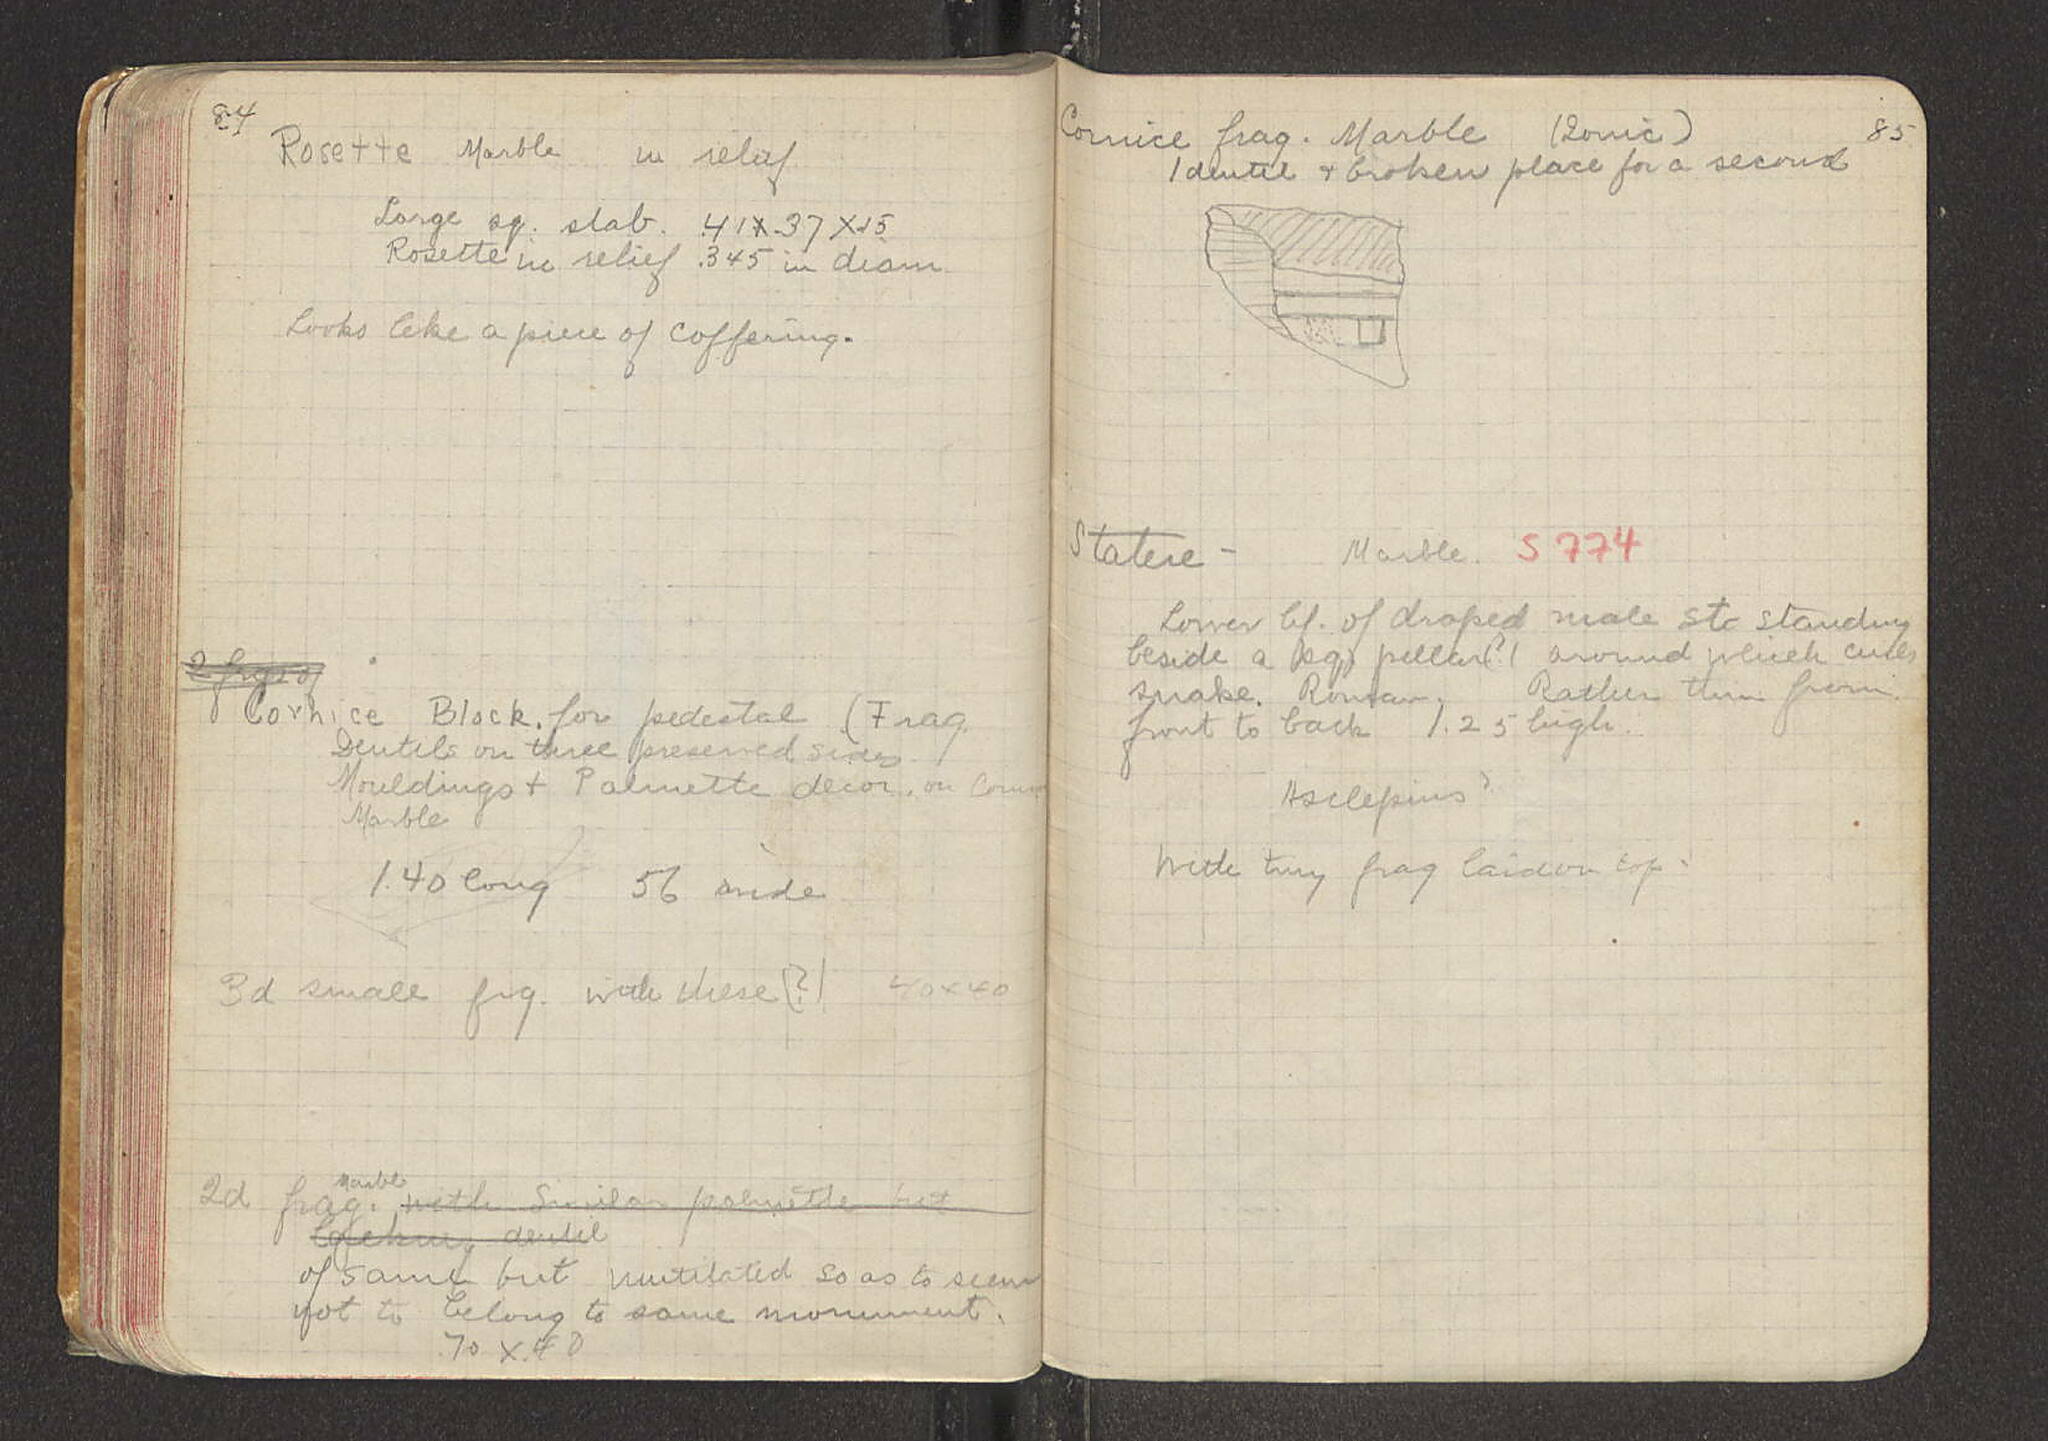 84
Rosette Marble in relief
Large sq. slab. .41x.37x.15
Rosette in relief .345 in diam
Looks like a piece of coffering.
2 frgs of
Cornice Block. for pedestal (Frag
Dentils on three preserved sides.
Mouldings + Palmette decor. on
Marble
1.40 long 56 wide
3d small frg. with these (?) 40x40
Marble
2d frag. with similar palmette but
lacking dentil
of same but mutilated so as to seem
not to belong to same monument.
.70 x .40
85
Cornice frag. Marble (Ionic)
1 dentil + broken place for a second
Statue - Marble. S 774
Lower hf. of draped male st standing
beside a (sq) pillar(?) around which curls
snake. Roman. Rather thin from
front to back 1.25 high.
Asclepius?
With tiny frag laid on top.